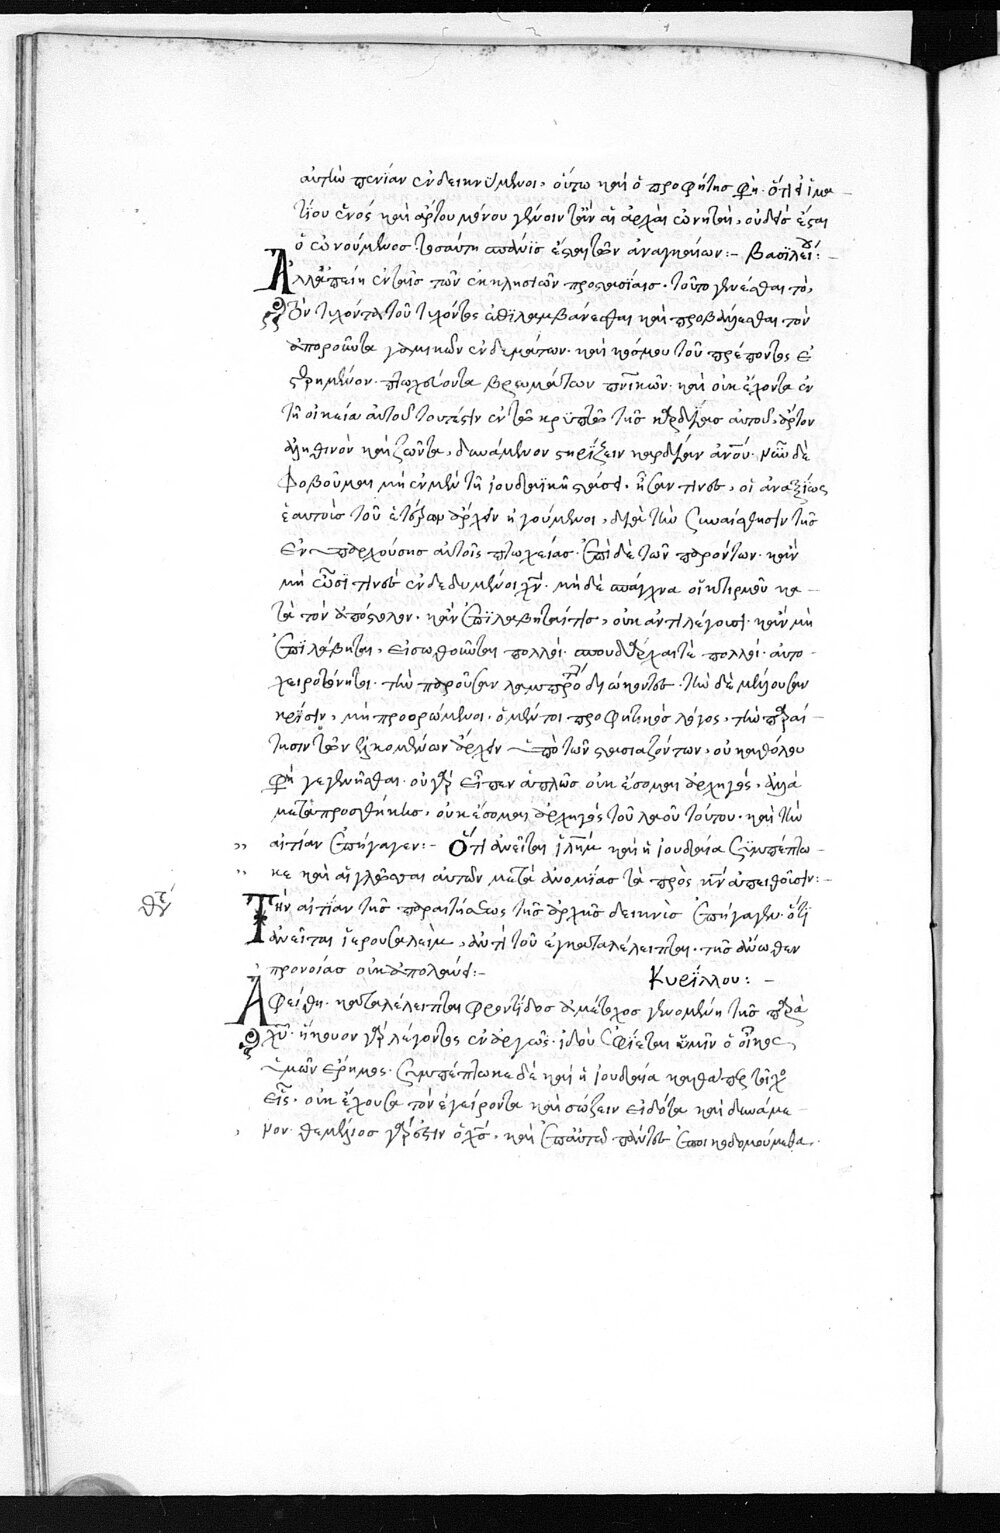 αὐτῶ πενίαν ἐνδεικνύμενοι, οὕτω καὶ ὁ προφήτης φη. ὅτι εἰ ἱμα
τίου ἑνός καὶ ἄρτου μόνου γένοιντ ἂν αἱ ἀρχαὶ ὠνηταὶ, οὐδεὶς ἔσται
ὁ ὠνούμενος τοσαύτη σπάνις ἔσται τῶν ἀναγκαίων:– Βασιλείου:–
Ἀλλ' ἐπεὶ ἐν ταῖς τῶν ἐκκλησιῶν προστασίαις. τοῦτο γενέσθαι τὸ,
τὸν τυχόντα τοῦ τυχόντος ἐπιλαμβάνεσθαι καὶ προβάλλεσθαι τὸν
ἀποροῦντα ἐνδυμάτων. καὶ κόσμου τοῦ πρέποντος ἐ
στερημένον. πτωχεύοντα βρωμάτων πνικῶν. καὶ οὐκ ἔχοντα ἐν
τῆ οἰκεία αὐτοῦ τουτέστιν ἐν τῶ κρυπτῶ τῆς καρδίας αὐτοῦ, ἄρτον
ἀληθινὸν καὶ ζῶντα, δυνάμενον στηρίξειν καρδίαν ἀνου. νῦν δὲ
φοβοῦμαι μὴ ἐν μὲν τῆ ἰουδαϊκῆ στάσει. ἦσαν τινες, οἱ ἀναξίως
ἑαυτοὺς τοῦ ἑτέρων ἄρχειν ἡγούμενοι, διὰ τὴν συναίσθησιν τῆς
ἐνυπαρχούσης αὐτοῖς πτωχείας. ἐπὶ δὲ τῶν παρόντων. κἂν
μὴ ὦσί τινες ἐνδεδυμένοι χν. μηδὲ σπλάγχνα οἰκτιρμοῦ κα
τὰ τὸν ἀπόστολον. κἂν ἐπιλάβηταί τις, οὐκ ἀντιλέγουσι. κἂν μὴ
ἐπιλάβηται, εἰσωθοῦνται πολλοί. σπουδάρχαι τὲ πολλοί. αὐτο
χειροτόνητοι. τὴν παροῦσαν λαμπρότητα διώκοντες. τὴν δὲ μέλλουσαν
κρίσιν, μὴ προορώμενοι. ὁ μέντοι προφητικὸς λόγος, τὴν παραί
τησιν τῶν ἑλκομένων ἄρχειν ὑπὸ τῶν στασιαζόντων, οὐ καθόλου
φη γεγενῆσθαι. οὐ γὰρ εἶπεν ἁπλῶς οὐκ ἔσομαι ἀρχηγός, ἀλλὰ
μετὰ προσθήκης, οὐκ ἔσομαι ἀρχηγός τοῦ λαοῦ τούτου. καὶ τὴν
αἰτίαν ἐπήγαγεν:– Ὅτι ἀνεῖται ἰλημ καὶ ἡ ἰουδαία συμπέπτω
κε καὶ αἱ γλῶσσαι αὐτῶν μετὰ ἀνομίας τὰ πρὸς κν ἀπειθοῦσιν:–
Τὴν αἰτίαν τῆς παραιτήσεως τῆς ἀρχῆς δεικνὺς ἐπήγαγεν. ὅτι
ἀνεῖται ἱερουσαλεὶμ, ἀντὶ τοῦ ἐγκαταλέλειπται. τῆς ἄνωθεν
προνοίας οὐκ ἀπολαύει:– Κυρίλλου:–
Ἀφείθη. καταλέλειπται φροντίδος ἀμέτοχος γενομένη τῆς παρὰ
χυ. ἤκουον γὰρ λέγοντος ἐναργῶς. ἰδοὺ ἀφίεται ὑμῖν ὁ οἶκος
ὑμῶν ἔρημος. συμπέπτωκε δὲ καὶ ἡ ἰουδαία καθάπερ τεῖχος
εἷς. οὐκ ἔχουσα τὸν ἐγείροντα καὶ σώζειν εἰδότα καὶ δυνάμε
νον. θεμέλιος γὰρ ἐστιν ὁ χς, καὶ ἐπ' αὐτῶ πάντες ἐποικοδομούμεθα.